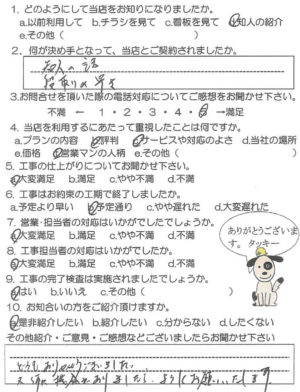 1. どのようにして当店をお知りになりましたか。
a.以前利用して b.チラシを見て c.看板を見て d.知人の紹介
e.その他（ ）
2. 何が決め手となって、当店とご契約されましたか。
知人の話
3.お問合せを頂いた際の電話対応についてご感想をお聞かせ下さい。
不満 ← 1・2・3・4・5 →満足
4. 当店を利用するにあたって重視したことは何ですか。
a.プランの内容 b.評判 c.サービスや対応のよさ d.当社の場所
e.価格 f.営業マンの人柄 e.その他（ ）
5. 工事の仕上がりについてお聞かせ下さい。
a.大変満足 b.満足 c.やや不満 d.不満
6. 工事はお約束の工期で終了しましたか。
a.予定より早い b.予定通り c.やや遅れた d.大変遅れた
7. 営業・担当者の対応はいかがでしたでしょうか。
a.大変満足 b.満足 c.やや不満 d.不満
8. 工事担当者の対応はいかがでしたか。
a.大変満足 b.満足 c.やや不満 d.不満
9. 工事の完了検査は実施されましたでしょうか。
a.はい b.いいえ c.その他（ ）
10. お知り合いの方をご紹介頂けますか。
a.是非紹介したい b.紹介したい c.分からない d.したくない
その他紹介・ご意見・ご感想などございましたらお聞かせ下さい
どうもありがとうございました。
ありがとうございま
す。タッキー